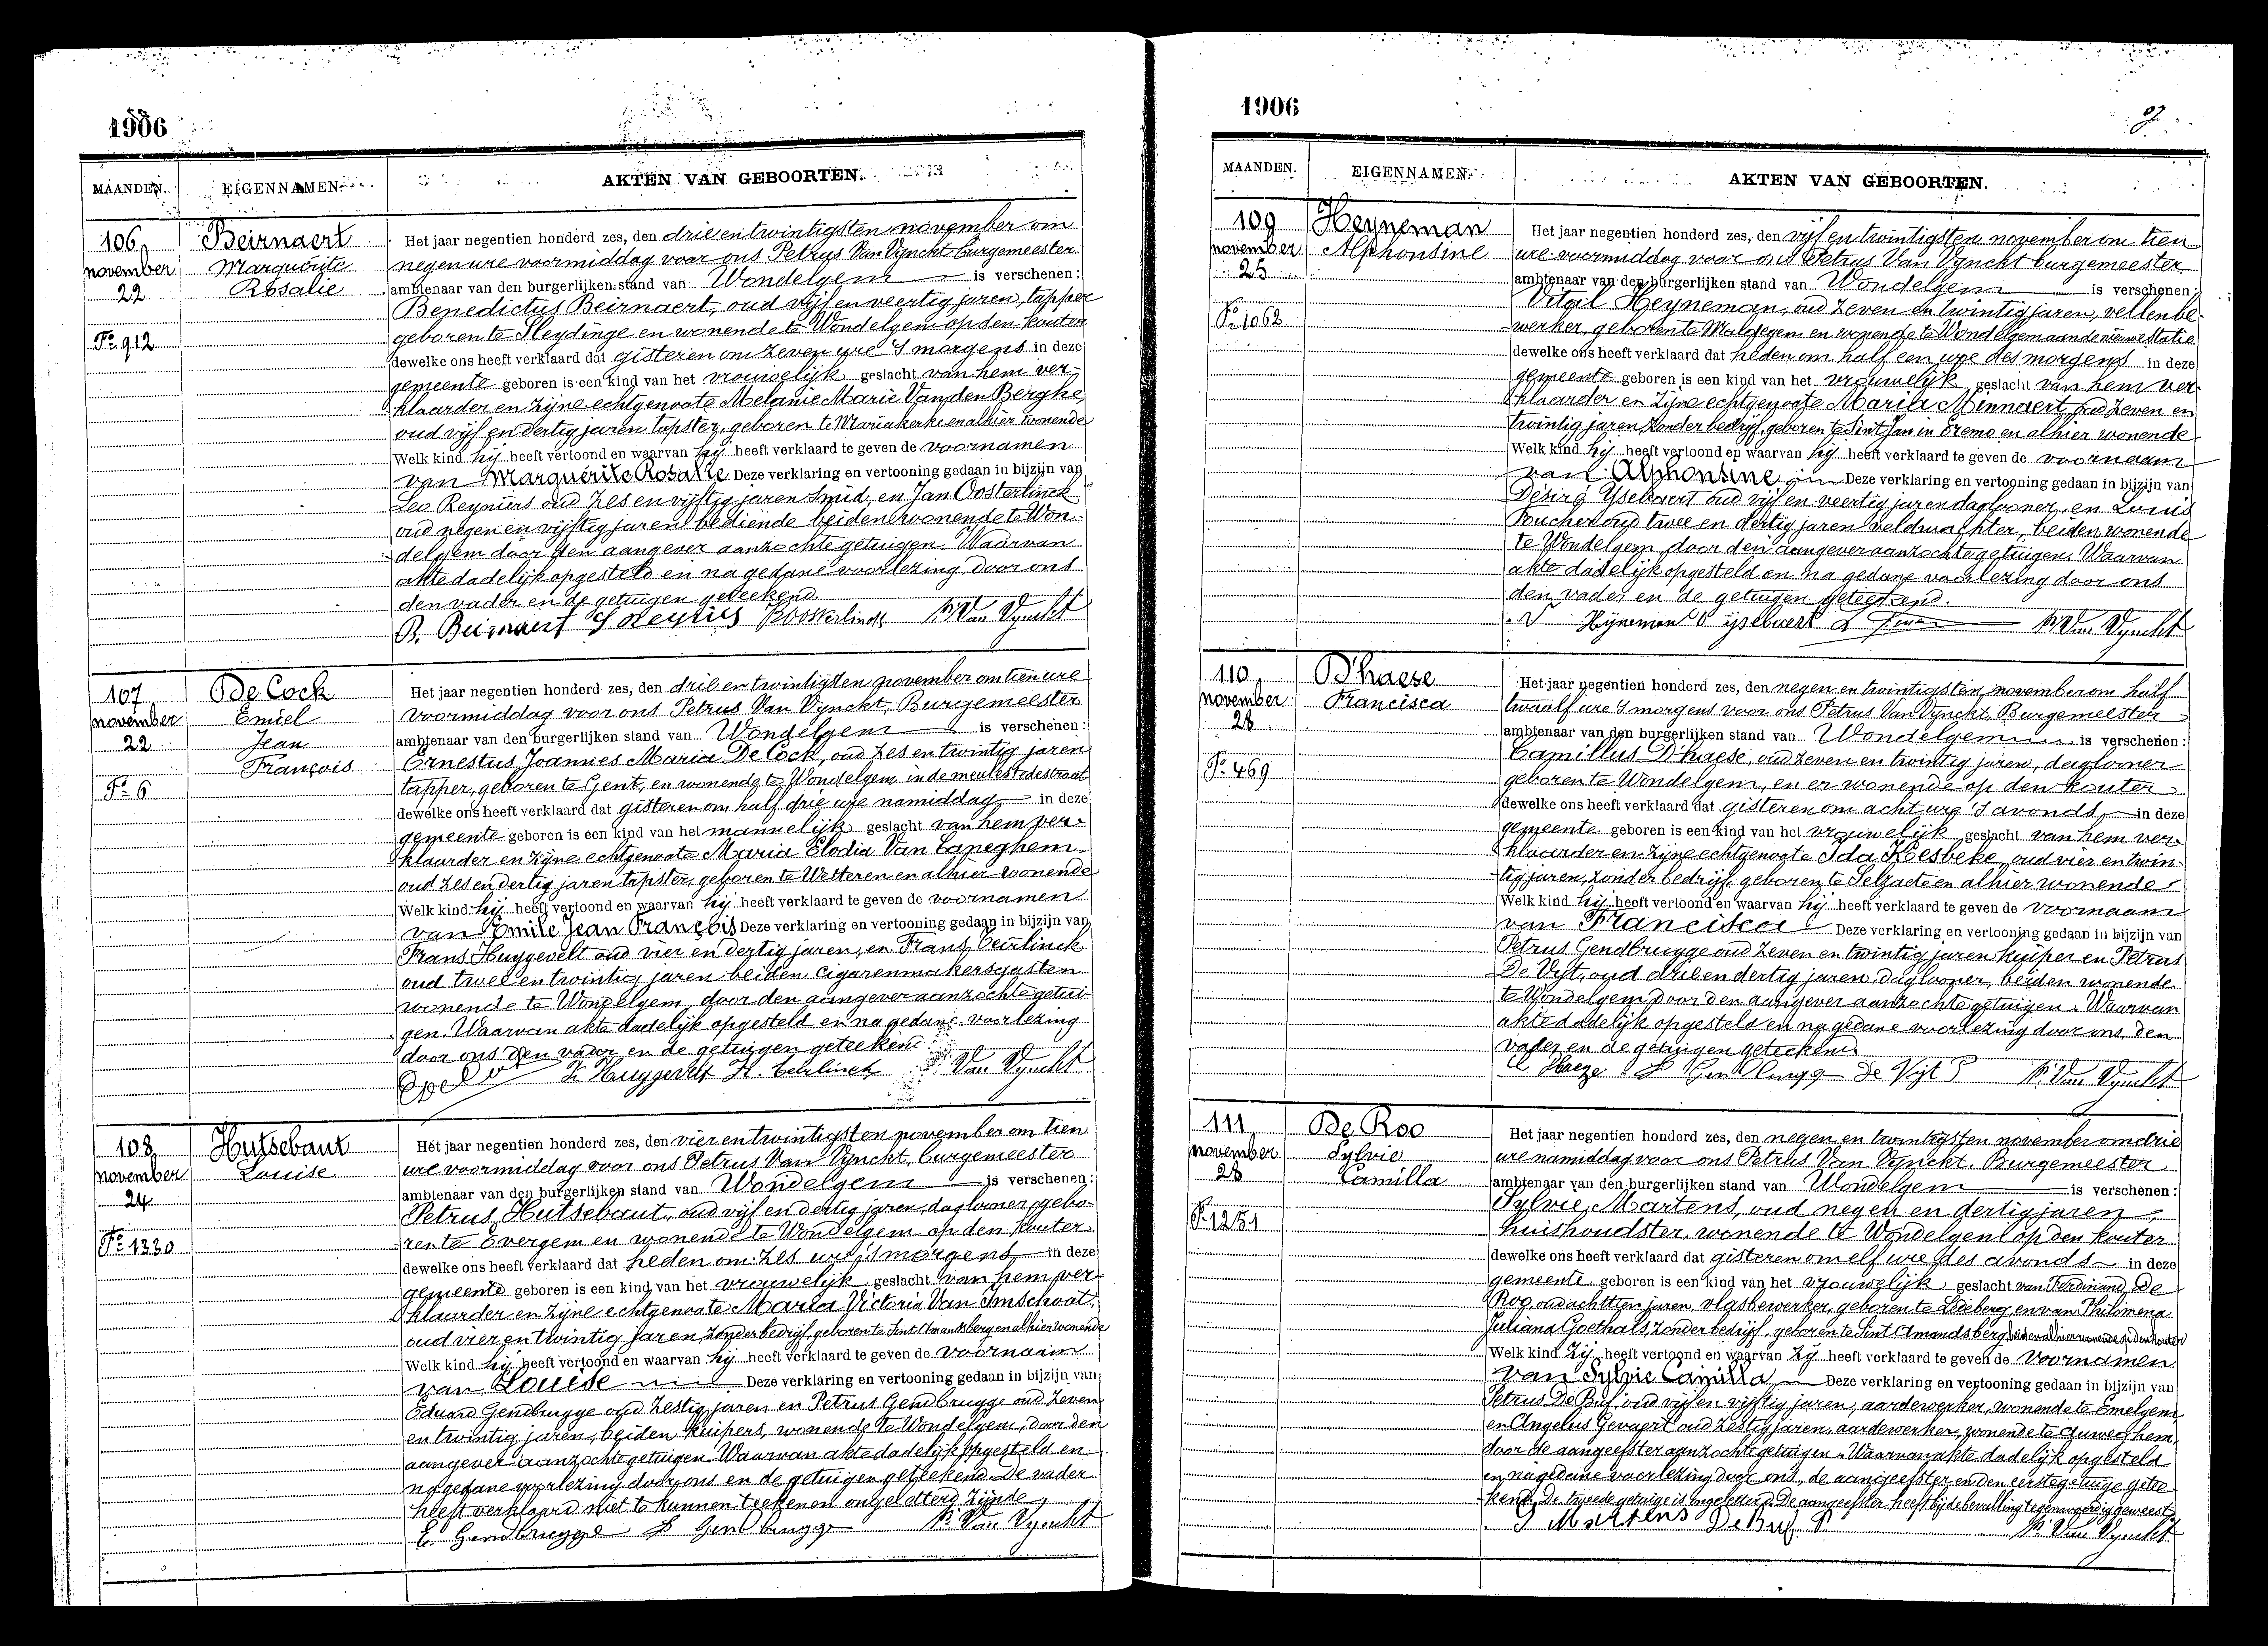 1906
MAANDEN.
EIGENNAMEN.
AKTEN VAN GEBOORTEN.
106
november
22
Fo 912
Beirnaert
Marguérite
Rosalie
Het jaar negentien honderd zes, den drie en twintigsten november om
negen ure voormiddag voor ons Petrus Van Vynckt burgemeester
ambtenaar van den burgerlijken stand van Wondelgem is verschenen:
Benedictus Beirnaert, oud vijf en veertig jaren, tapper
geboren te Sleydinge en wonende te Wondelgem op den kouter
dewelke ons heeft verklaard dat gisteren om zeven ure 's morgens in deze
gemeente geboren is een kind van het vrouwelijk geslacht van hem ver-
klaarder en zijne echtgenoote Melanie Marie Van den Berghe,
oud vijf en dertig jaren tapster, geboren te Mariakerke en alhier wonende
Welk kind hij heeft vertoond en waarvan hij heeft verklaard te geven de voornamen
van Marguérite Rosalie Deze verklaring en vertooning gedaan in bijzijn van
Leo Reyniers oud zes en vijftig jaren smid, en Jan Oosterlinck
oud negen en vijftig jaren bediende beiden wonende te Won-
delgem door den aangever aanzochte getuigen. Waarvan
akte dadelijk opgesteld en na gedane voorlezing door ons
den vader en de getuigen geteekend.
B. Beirnaert Oosterlinck P. Van Vynckt
107
november
22
Fo 6
De Cock
Emiel
Jean
François
Het jaar negentien honderd zes, den drie en twintigsten november om tien ure
voormiddag voor ons Petrus Van Vynckt, Burgemeester
ambtenaar van den burgerlijken stand van Wondelgem is verschenen:
Ernestus Joannes Maria De Cock, oud zes en twintig jaren
tapper, geboren te Gent, en wonende te Wondelgem in de meulestedestraat
dewelke ons heeft verklaard dat gisteren om half drie ure namiddag in deze
gemeente geboren is een kind van het mannelijk geslacht van hem ver-
klaarder en zijne echtgenoote Maria Elodia Van Laneghem
oud zes en dertig jaren tapster, geboren te Wetteren en alhier wonende
Welk kind hij heeft vertoond en waarvan hij heeft verklaard te geven de voornamen
van Emile Jean François Deze verklaring en vertooning gedaan in bijzijn van
Frans Huygevelt oud vier en dertig jaren, en Frans Teirlinck
oud twee en twintig jaren beiden cigarenmakersgasten
wonende te Wondelgem, door den aangever aanzochte getui-
gen. Waarvan akte dadelijk opgesteld en na gedane voorlezing
door ons den vader en de getuigen geteekend
F. Huygevelt Van Vynckt
108
november
24
Fo 1330
Hutsebaut
Louise
Het jaar negentien honderd zes, den vier en twintigsten november om tien
ure voormiddag voor ons Petrus Van Vynckt, burgemeester
ambtenaar van den burgerlijken stand van Wondelgem is verschenen:
Petrus Hutsebaut, oud vijf en dertig jaren, daglooner, gebo-
ren te Evergem en wonende te Wondelgem op den kouter
dewelke ons heeft verklaard dat heden om zes ure 's morgens in deze
gemeente geboren is een kind van het vrouwelijk geslacht van hem ver-
klaarder en zijne echtgenoote Maria Victoria Van Imschoot,
oud vier en twintig jaren, zonder bedrijf, geboren te Sint Amandsberg en alhier wonende
Welk kind hij heeft vertoond en waarvan hij heeft verklaard te geven de voornaam
van Louise Deze verklaring en vertooning gedaan in bijzijn van
Eduard Gendbrugge oud zestig jaren en Petrus Gendbrugge oud zeven
en twintig jaren, beiden kuipers, wonende te Wondelgem, door den
aangever aanzochte getuigen. Waarvan akte dadelijk opgesteld en
na gedane voorlezing door ons en de getuigen geteekend. De vader
heeft verklaard niet te kunnen teekenen ongeletterd zijnde
E. Gendbrugge P Gendbrugge P. Van Vynckt
1906
MAANDEN.
EIGENNAMEN.
AKTEN VAN GEBOORTEN.
109
november
25
Fo 1062
Heyneman
Alphonsine
Het jaar negentien honderd zes, den vijf en twintigsten november om tien
ure voormiddag voor ons Petrus Van Vynckt burgemeester
ambtenaar van den burgerlijken stand van Wondelgem is verschenen:
Vitail Heyneman, oud zeven en twintig jaren, vellenbe-
werker, geboren te Maldegem en wonende te Wondelgem aan de nieuwe statie
dewelke ons heeft verklaard dat heden om half een ure des morgens in deze
gemeente geboren is een kind van het vrouwelijk geslacht van hem ver-
klaarder en zijne echtgenoote Maria Minnaert oud zeven en
twintig jaren, zonder bedrijf, geboren te Sint Jan in Eremo en alhier wonende
Welk kind hij heeft vertoond en waarvan hij heeft verklaard te geven de voornaam
van Alphonsine Deze verklaring en vertooning gedaan in bijzijn van
Désiré Ysebaert oud vijf en veertig jaren daglooner, en Louis
oud twee en dertig jaren veldwachter, beiden wonende
te Wondelgem door den aangever aanzochte getuigen. Waarvan
akte dadelijk opgesteld en na gedane voorlezing door ons
den vader en de getuigen geteekend.
V Hijneman D ijsebaert P. Van Vynckt
110
november
28
Fo 469
D'haese
Francisca
Het jaar negentien honderd zes, den negen en twintigsten november om half
twaalf ure 's morgens voor ons Petrus Van Vynckt, Burgemeester
ambtenaar van den burgerlijken stand van Wondelgem is verschenen:
Camillus D'haese, oud zeven en twintig jaren, daglooner
geboren te Wondelgem, en er wonende op den kouter
dewelke ons heeft verklaard dat gisteren om acht ure 's avonds in deze
gemeente geboren is een kind van het vrouwelijk geslacht van hem ver-
klaarder en zijne echtgenoote Ida Kesbeke, oud vier en twin-
tig jaren, zonder bedrijf, geboren te Selzaete en alhier wonende
Welk kind hij heeft vertoond en waarvan hij heeft verklaard te geven de voornaam
van Francisca Deze verklaring en vertooning gedaan in bijzijn van
Petrus Gendbrugge oud zeven en twintig jaren kuiper en Petrus
De Vyt, oud drie en dertig jaren, daglooner, beiden wonende
te Wondelgem door den aangever aanzochte getuigen. Waarvan
akte dadelijk opgesteld en na gedane voorlezing door ons, den
vader en de getuigen geteekend.
De Vijt P P. Van Vynckt
111
november
28
Fo 1251
De Roo
Sylvie
Camilla
Het jaar negentien honderd zes, den negen en twintigsten november om drie
ure namiddag voor ons Petrus Van Vynckt, Burgemeester
ambtenaar van den burgerlijken stand van Wondelgem is verschenen:
Sylvie Martens, oud negen en dertig jaren
huishoudster, wonende te Wondelgem op den kouter
dewelke ons heeft verklaard dat gisteren om elf ure des avonds in deze
gemeente geboren is een kind van het vrouwelijk geslacht van Ferdinand De
Roo, oud jaren, vlasbewerker, geboren te Ledeberg en van Philomena
Juliana Goethals, zonder bedrijf, geboren te Sint Amandsberg beiden alhier wonende op den kouter
Welk kind zij heeft vertoond en waarvan zij heeft verklaard te geven de voornamen
van Sylvie Camilla, Deze verklaring en vertooning gedaan in bijzijn van
Petrus De Buf, oud vijf en vijftig jaren, aardewerker, wonende te Emelgem
en Angelus Gevaert oud zestig jaren, aardewerker, wonende te Auweghem,
door de aangeefster aanzochte getuigen. Waarvan akte dadelijk opgesteld
en na gedane voorlezing door ons, de aangeefster en den eerste getuige getee-
kend. De tweede getuige is ongeletterd. De aangeefster heeft bij de bevalling tegenwoordig geweest.
S Martens De Buf P P. Van Vynckt